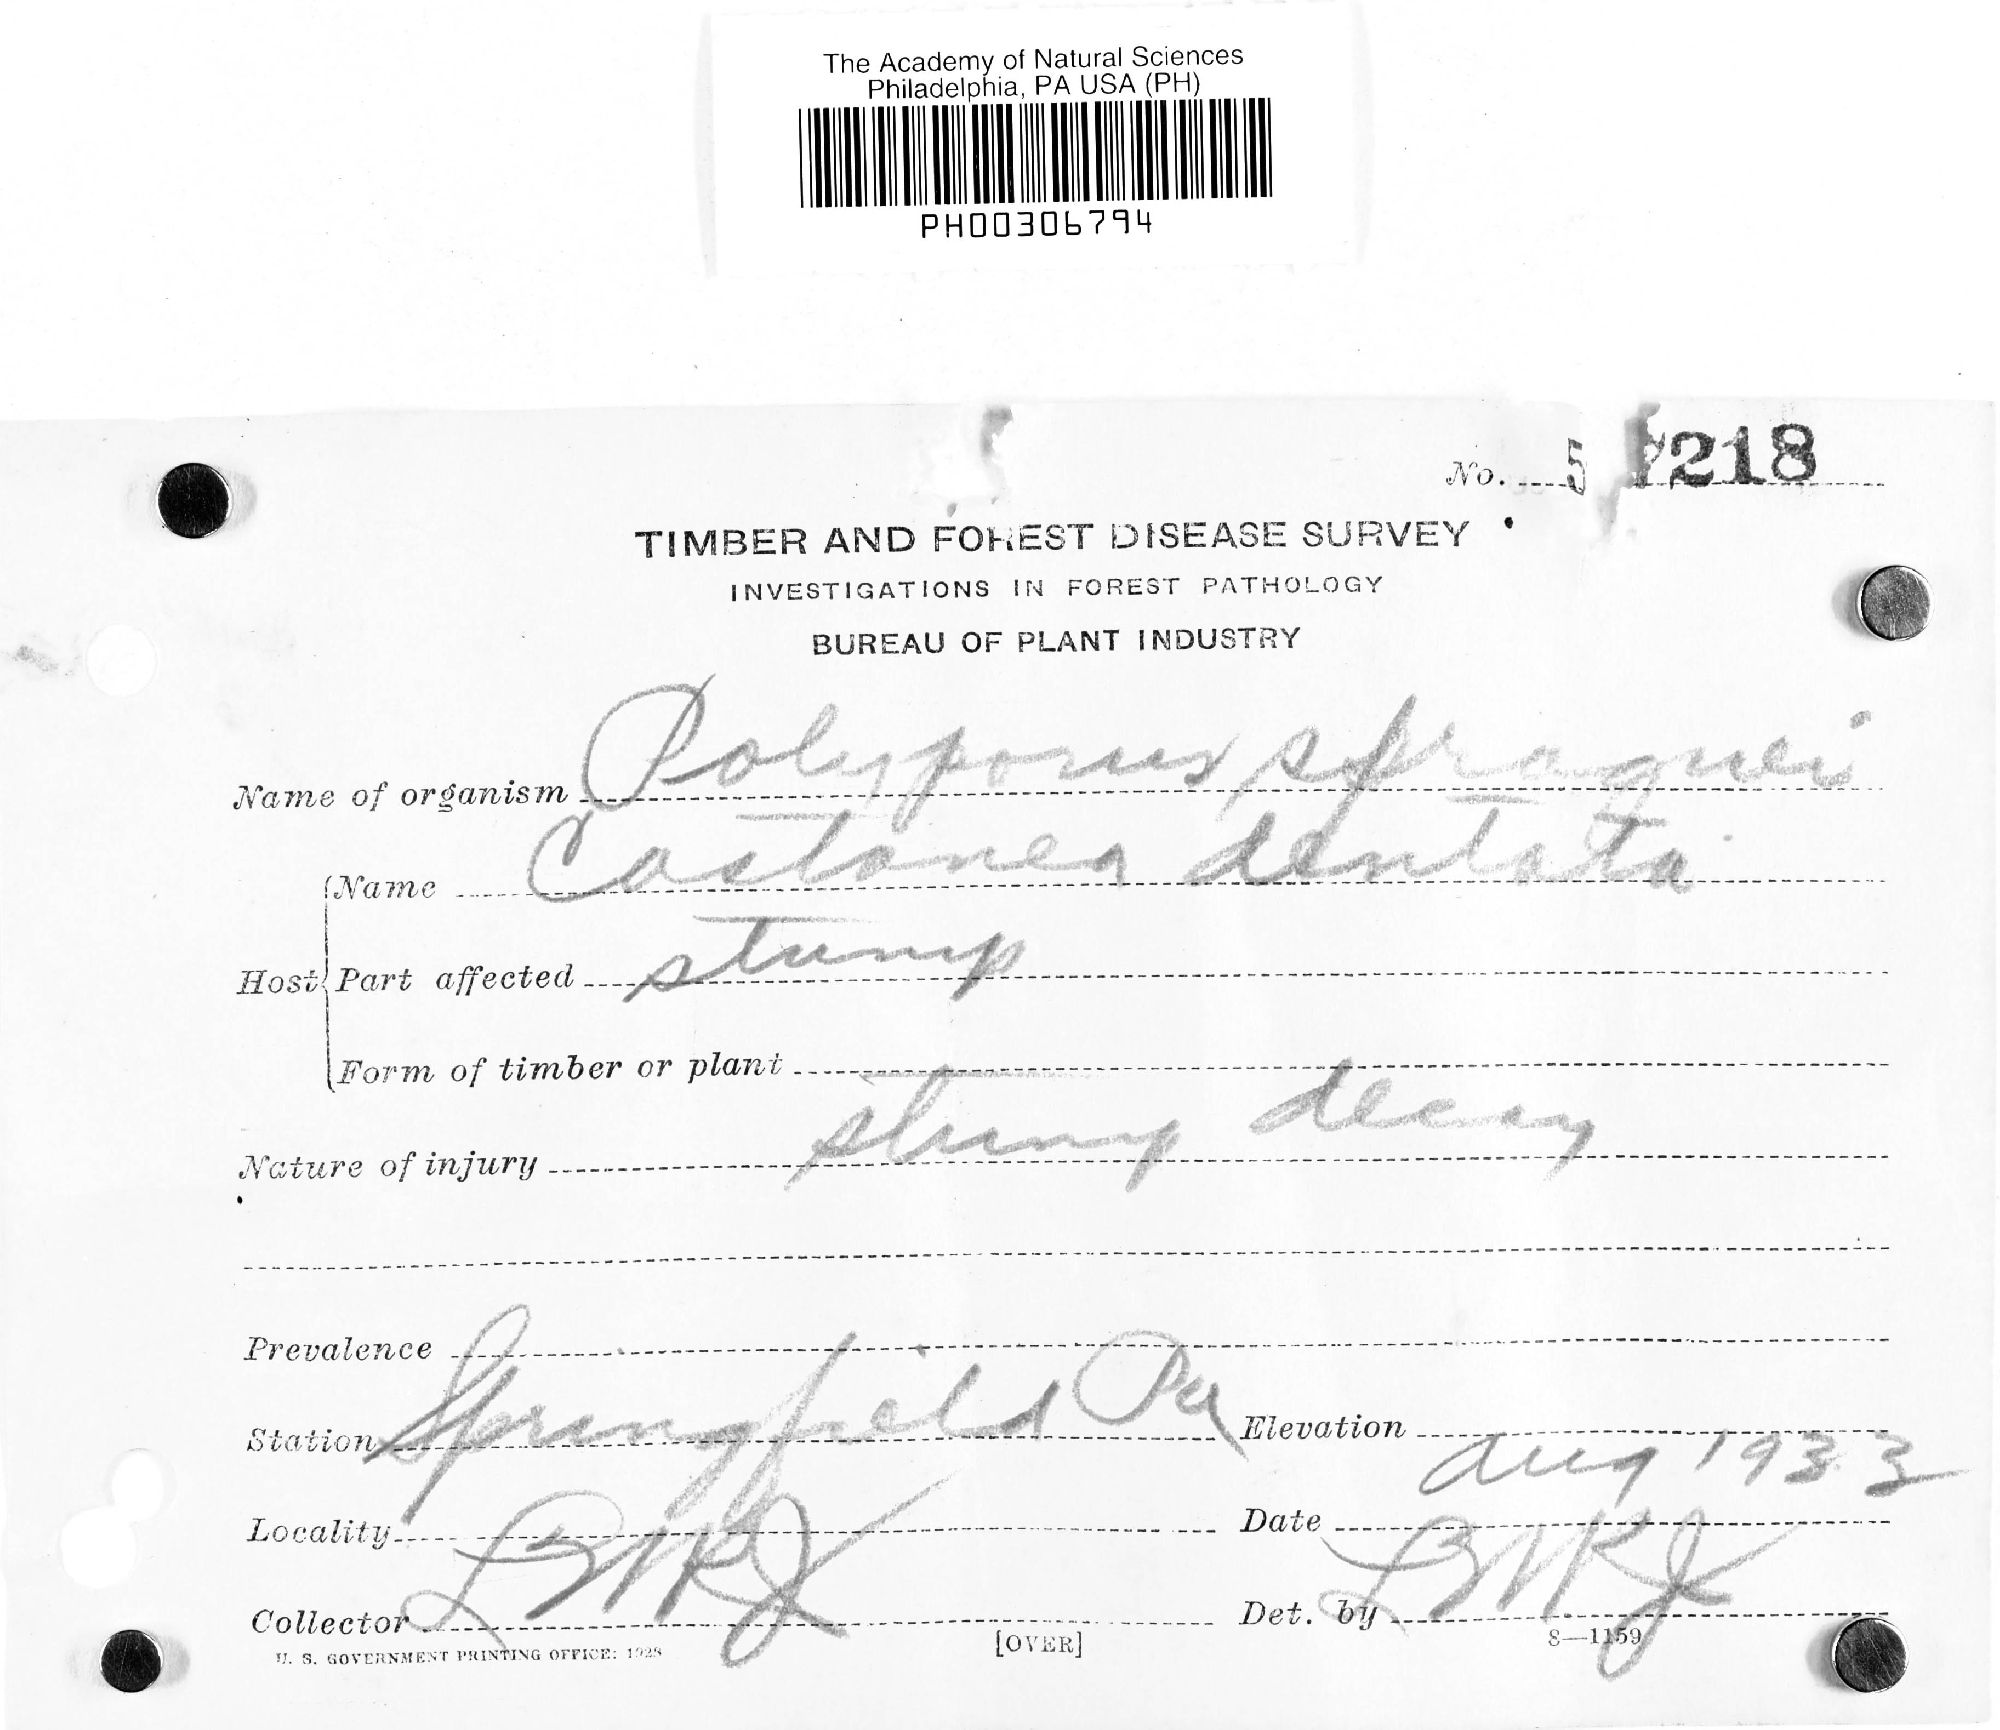 The Academy of Natural Sciences
Philadelphia, PA USA (PH)
PH00306794
No. 5 7218
TIMBER AND FOREST DISEASE SURVEY
INVESTIGATIONS IN FOREST PATHOLOGY
BUREAU OF PLANT INDUSTRY
Name of organism Polyporus spraguei
Name Castanea dentata
Host Part affected stump
Form of timber or plant
Nature of injury stump decay
Prevalence
Station Springfield Pa Elevation
Locality Date Aug 1933
Collector Det. by
U. S. GOVERNMENT PRINTING OFFICE: 1928 [OVER] 8—1159